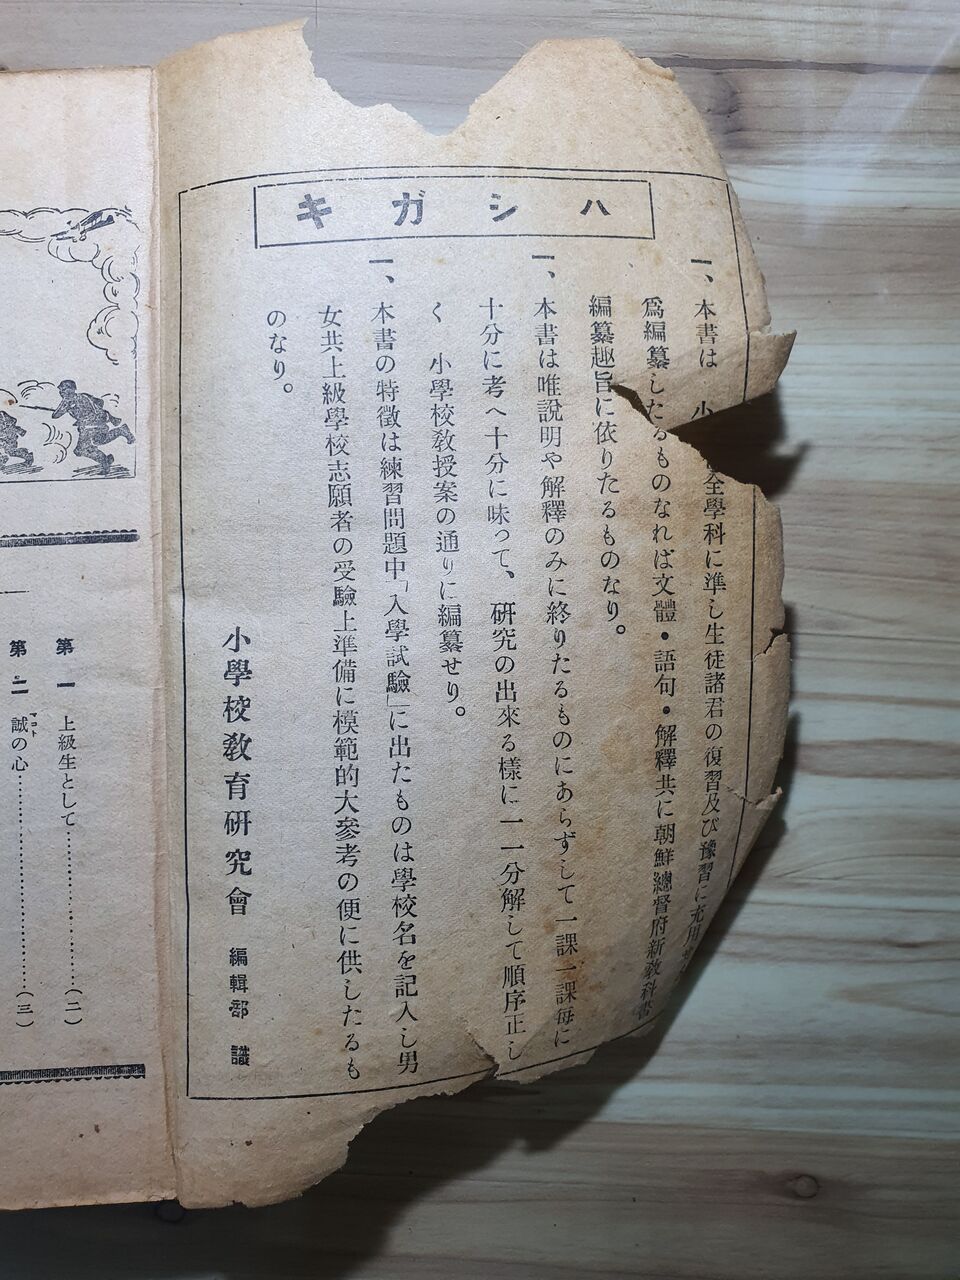 ハシガキ
一、本書は 小 全學科に準し生徒諸君の復習及び豫習に充用
爲編纂したるものなれば文體・語句・解釋共に朝鮮總督府新敎科書
編纂趣旨に依りたるものなり。
一、本書は唯說明や解釋のみに終りたるものにあらずして一課一課每に
十分に考へ十分に味って、研究の出來る樣に一一分解して順序正し
く 小學校敎授案の通りに編纂せり。
一、本書の特徵は練習問題中「入學試驗」に出たものは學校名を記入し男
女共上級學校志願者の受驗上準備に模範的大參考の便に供したるも
のなり。
小學校敎育硏究會 編輯部 識
第一 上級生として…………………(二)
第二 誠の心…………………(三)
マコト